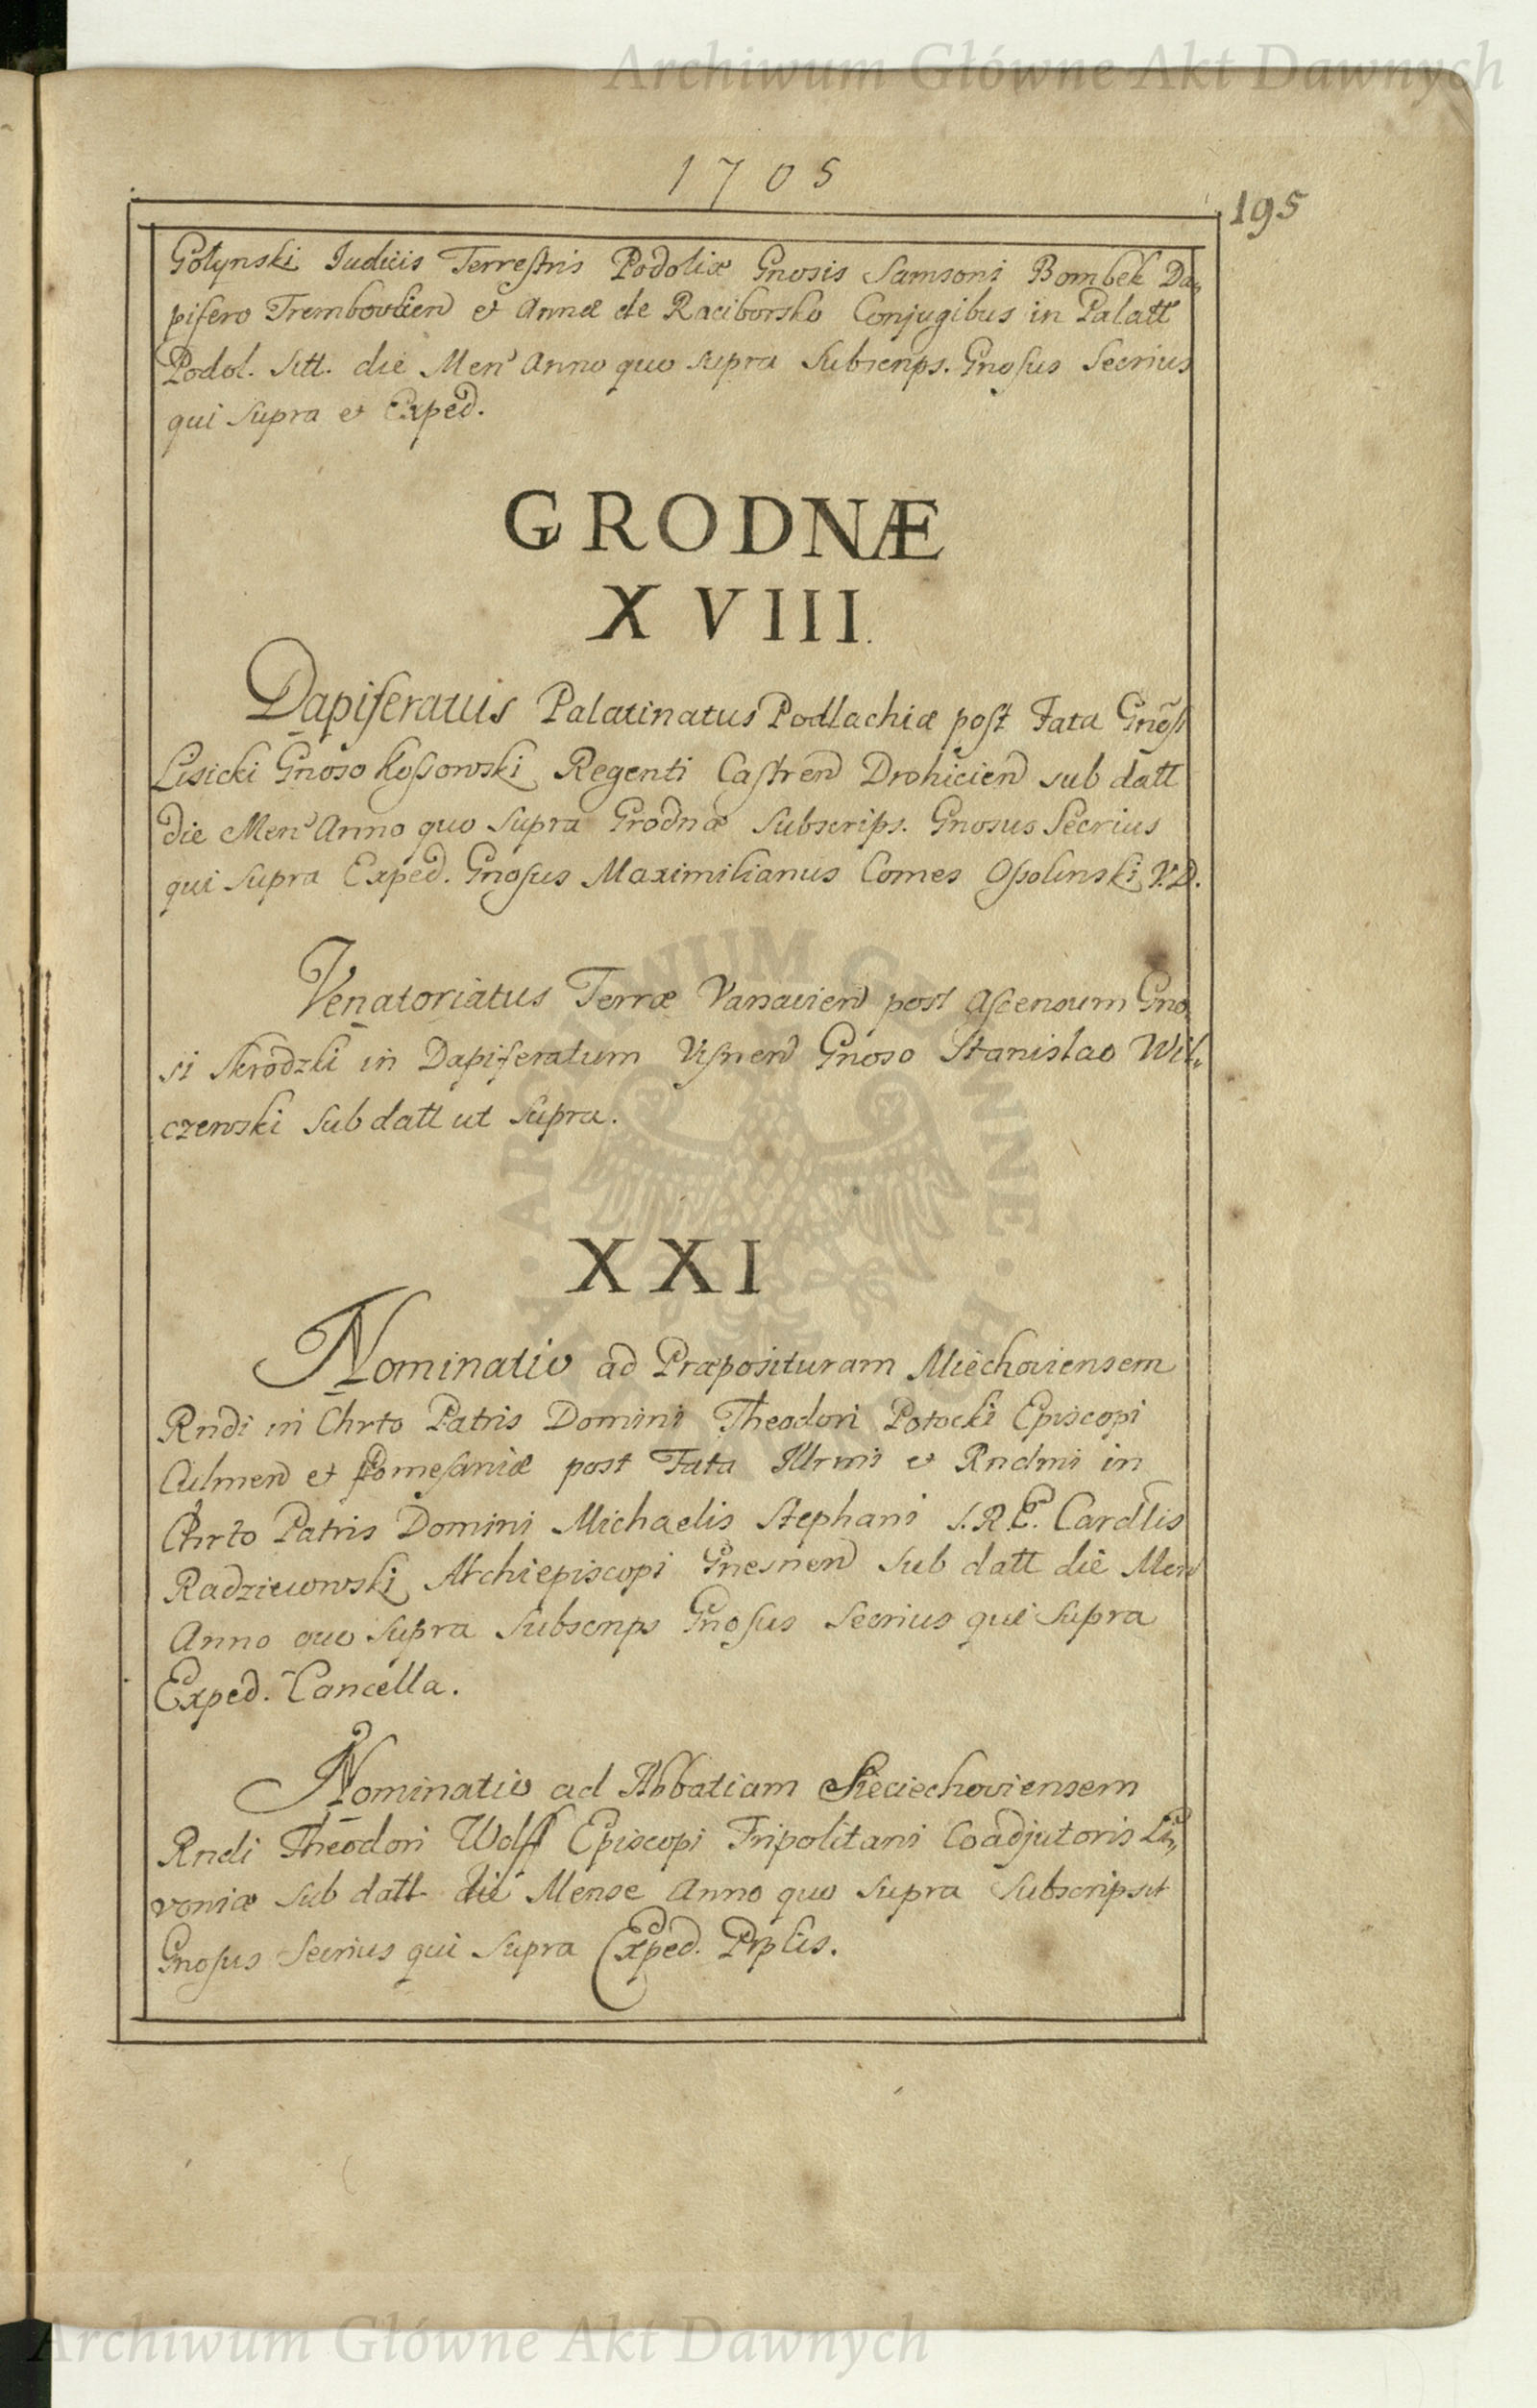 Archiwum Główne Akt Dawnych
1705
195
Gołynski Iudicis Terrestris Podoliæ Gnosis Samsoni Bombek Da-
pifero Trembovlien et Annæ de Raciborsko Conjugibus in Palatt
Podol. Sitt. die Men Anno quo supra Subscrips. Gnosus Secrius
qui supra et Exped.
GRODNÆ
XVIII.
Dapiferatus Palatinatus Podlachiæ post Fata Gnosi
Lisicki Gnoso Kossowski Regenti Castren Drohicien sub datt
die Men Anno quo supra Grodnæ Subscrips. Gnosus Secrius
qui supra Exped. Gnosus Maximilianus Comes Ossolinski V.D.
Venatoriatus Terræ Varsavien post Ascensum Gno
si Skrodzki in Dapiferatum Visnen Gnoso Stanislao Wil-
czewski sub datt ut supra.
XXI
Nominatio ad Præposituram Miechoviensem
Rndi in Chrto Patris Domini Theodori Potocki Episcopi
Culmen et Pomesaniæ post Fata Illrmi et Rndmi in
Chrto Patris Domini Michaelis Stephani S.R.E. Cardlis
Radzieiowski Archiepiscopi Gnesnen sub datt die Men
Anno quo supra Subscrips Gnosus Secrius qui supra
Exped. Cancella.
Nominatio ad Abbatiam Sieciechoviensem
Rndi Theodori Wolff Episcopi Tripolitani Coadjutoris Li-
voniæ sub datt die Mense Anno quo supra Subscripsit
Gnosus Secrius qui supra Exped. Prplis.
Archiwum Główne Akt Dawnych